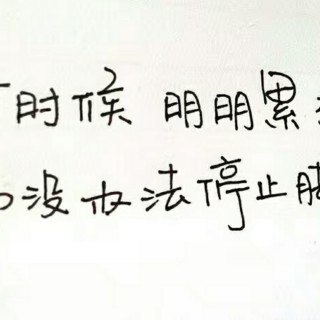 时候 明明累
没办法停止